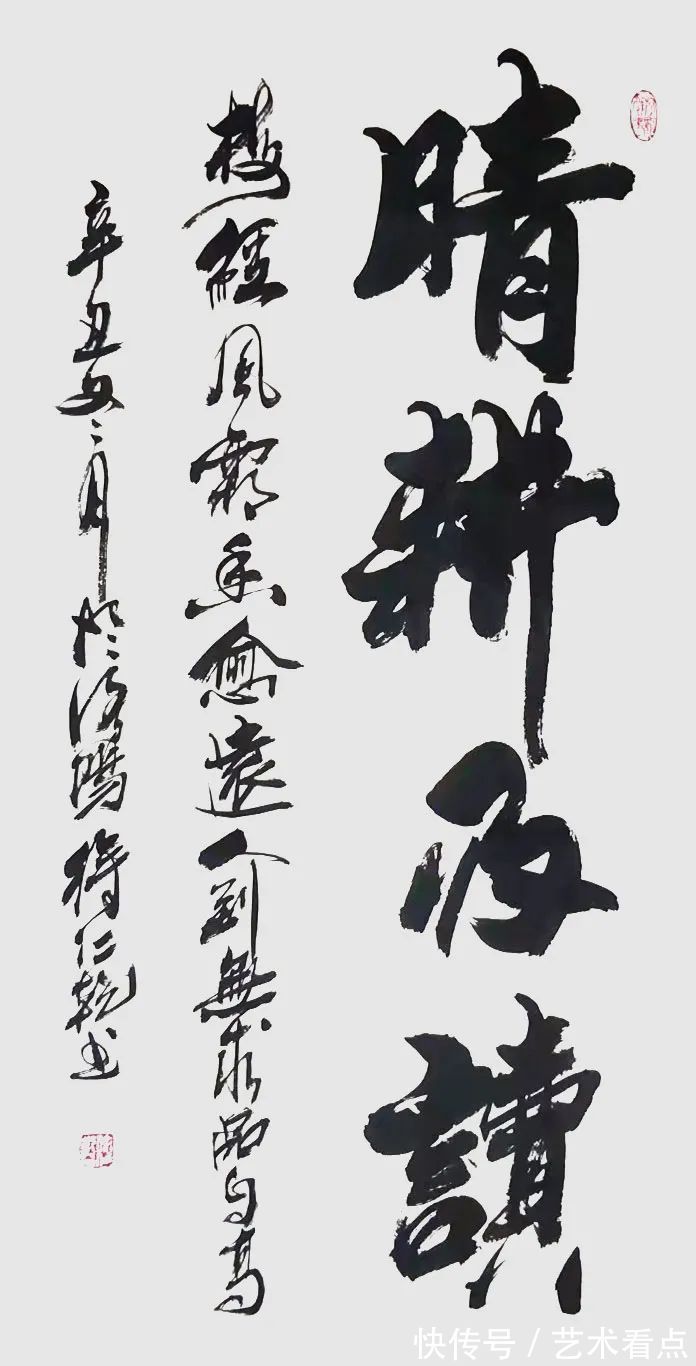 晴耕夜讀
梅經風霜香愈遠人到無求品自高
辛丑年二月於洛陽仁乾書
快传号 / 艺术看点